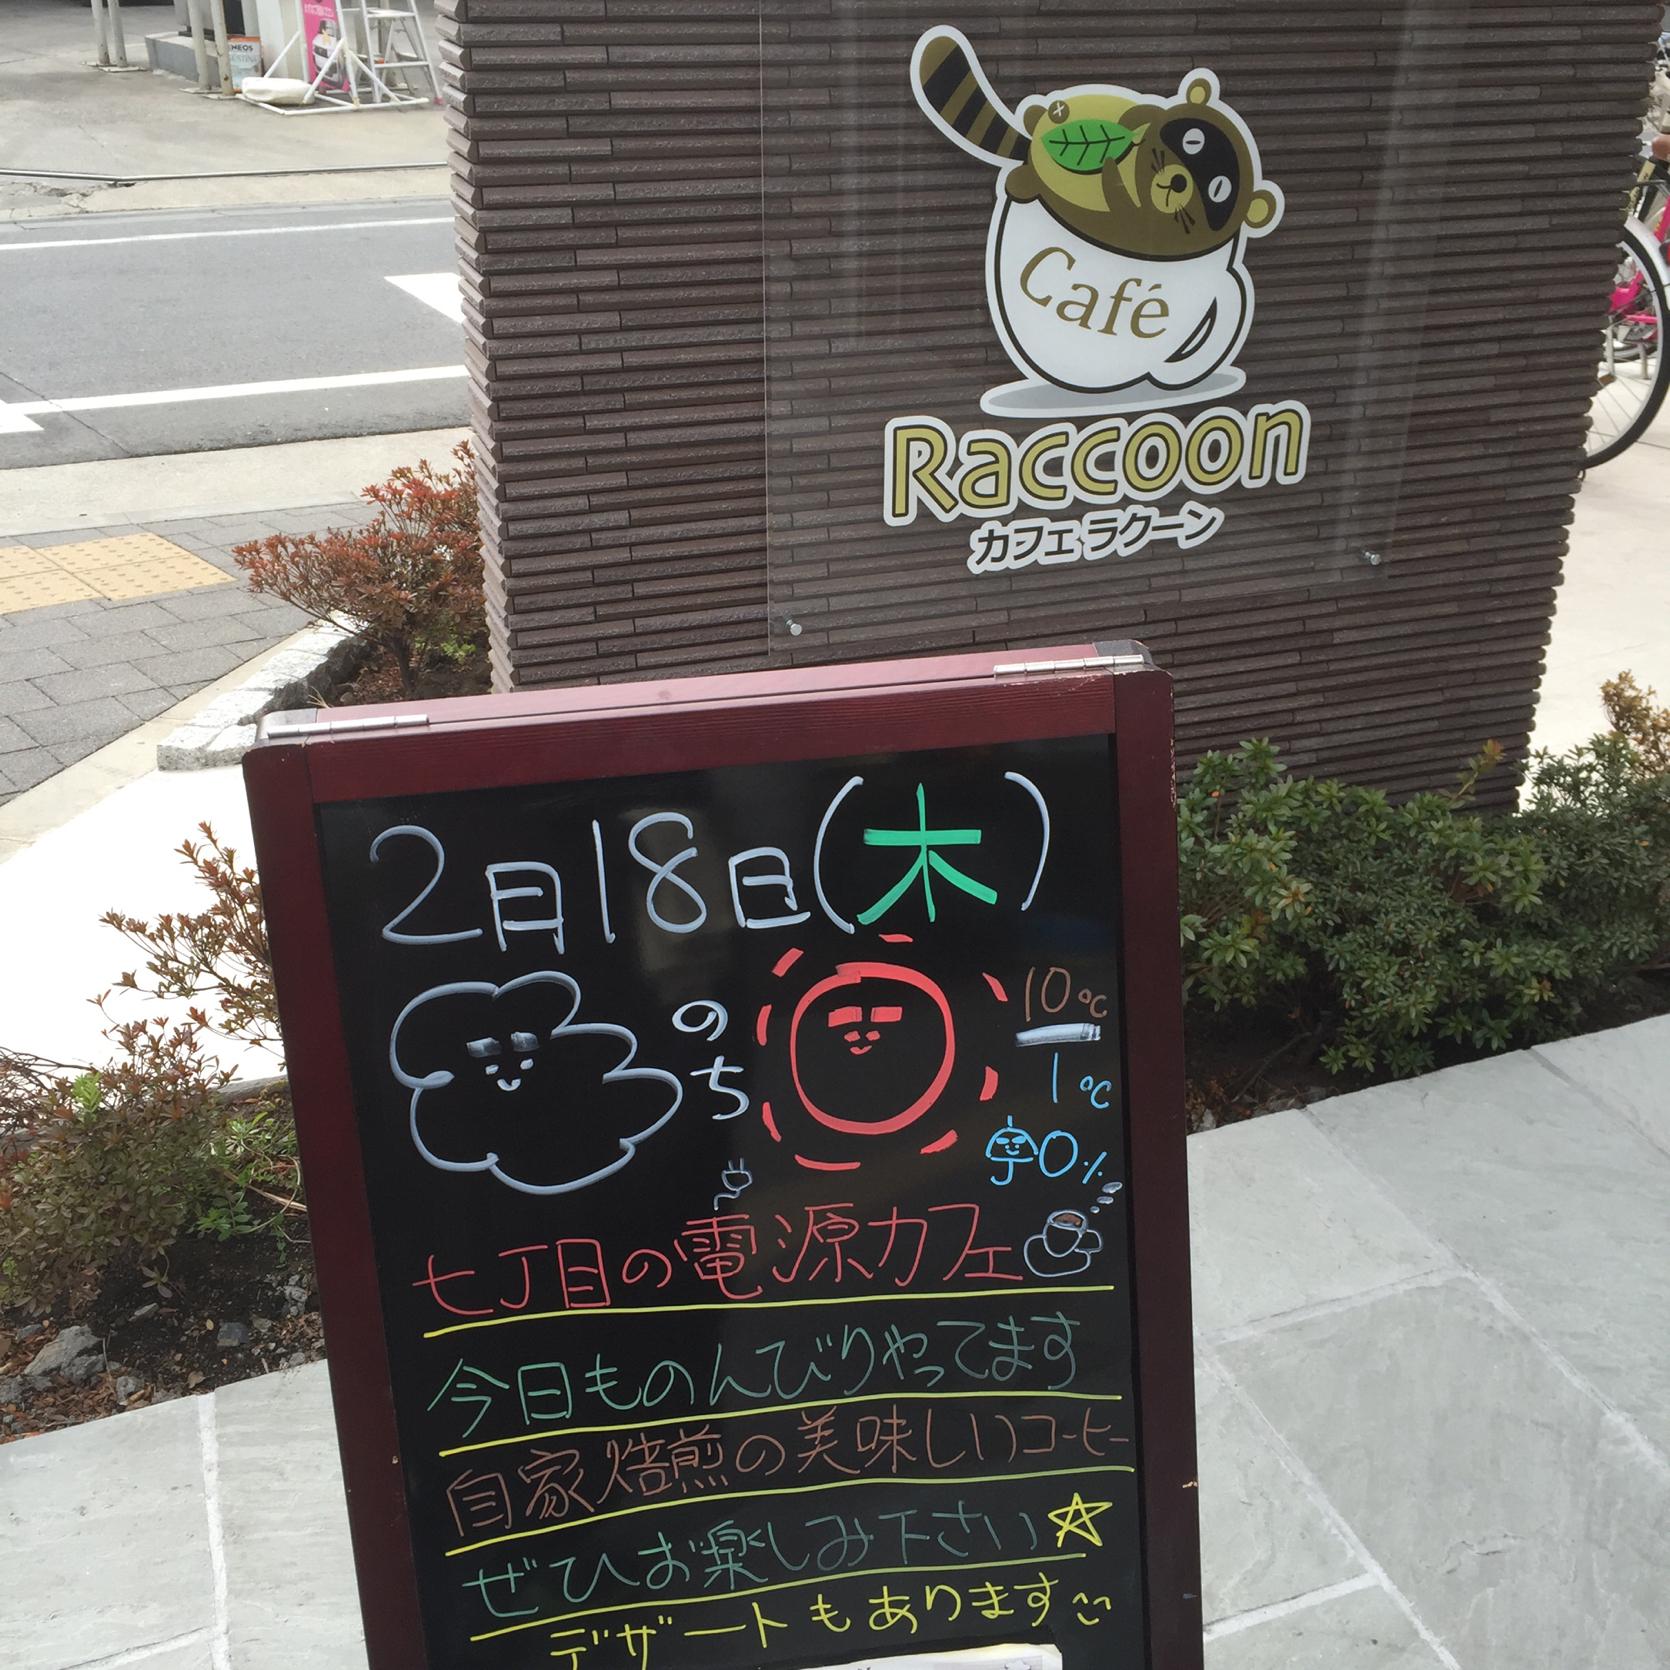 ENEOS
Café
Raccoon
カフェ ラクーン
2月18日(木)
のち
10℃
1℃
0%
七丁目の電源カフェ
今日ものんびりやってます
自家焙煎の美味しいコーヒー
ぜひお楽しみ下さい☆
デザートもあります